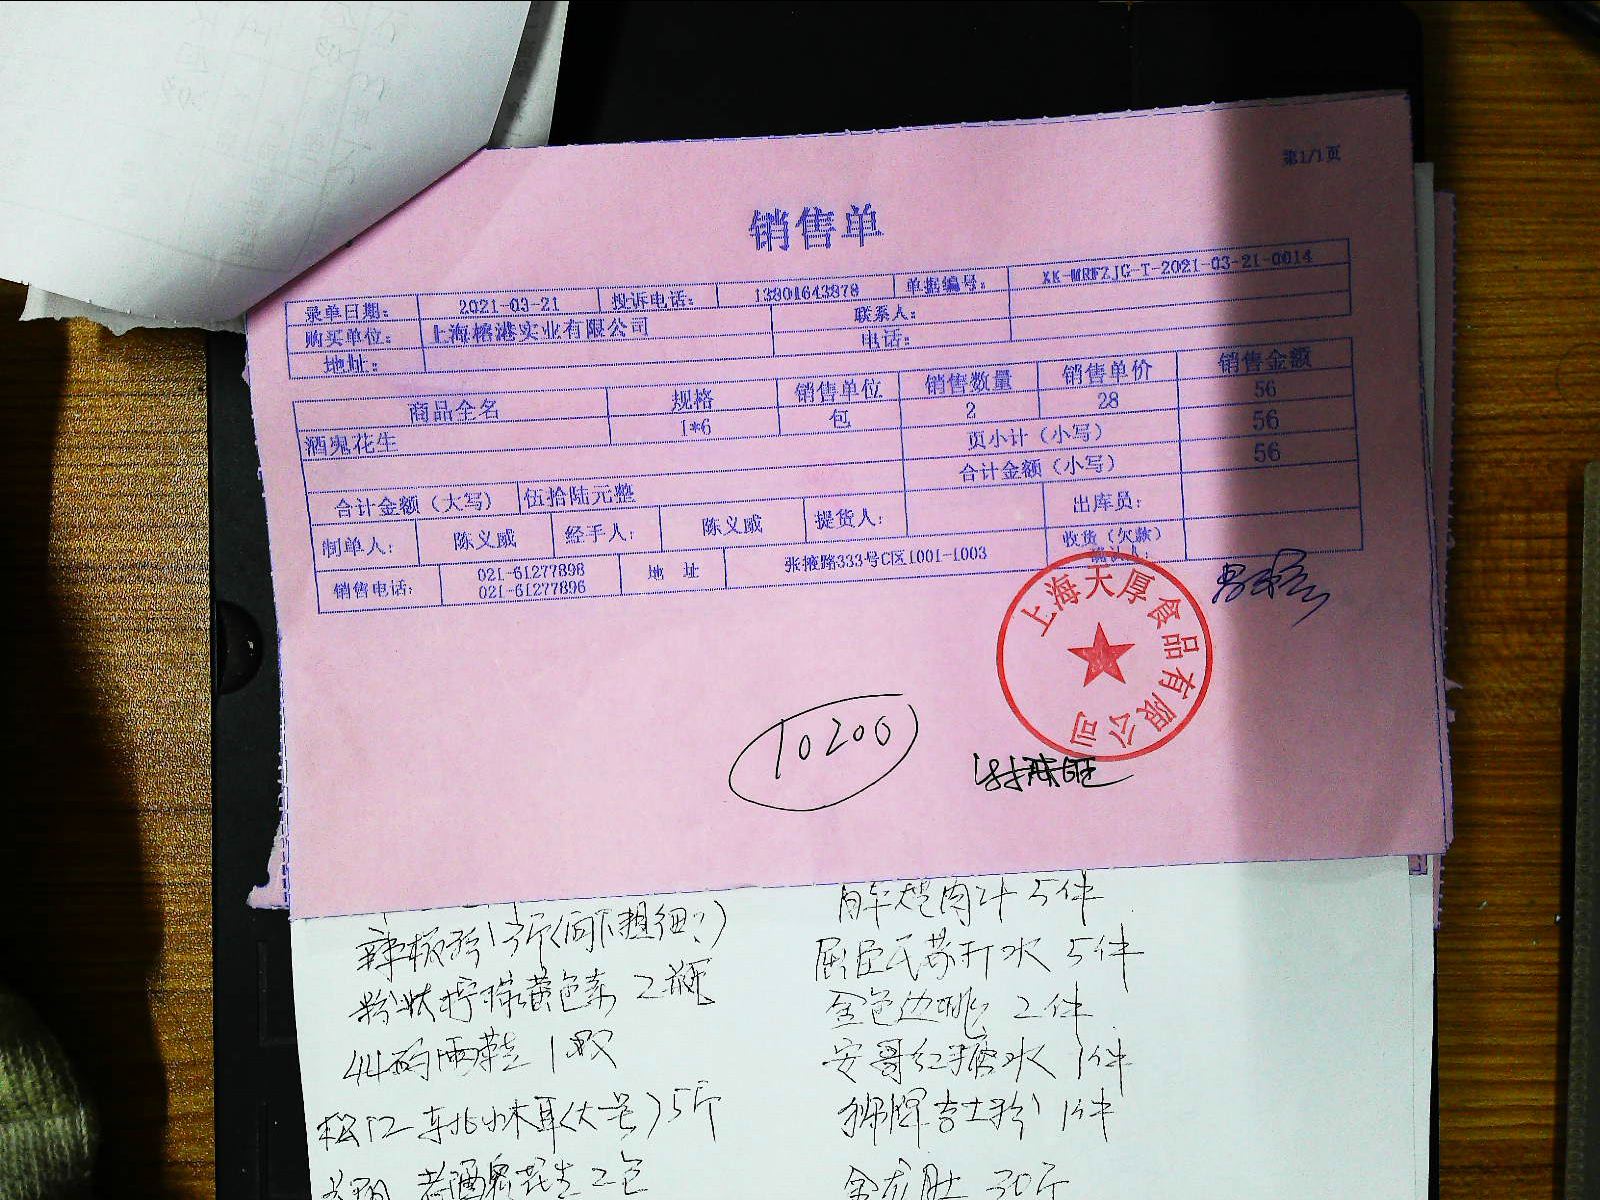 第1/1页
销售单
录单日期： 2021-03-21 投诉电话： 13801643878 单据编号： XK-MRFZJG-T-2021-03-21-0014
购买单位： 上海榕港实业有限公司 联系人：
地址： 电话：
商品全名 规格 销售单位 销售数量 销售单价 销售金额
酒鬼花生 1*6 包 2 28 56
页小计（小写） 56
合计金额（大写） 伍拾陆元整 合计金额（小写） 56
制单人： 陈义威 经手人： 陈义威 提货人： 出库员：
销售电话： 021-61277898 地 址 张掖路333号C区1001-1003 收货（欠款）
021-61277896 确认人：
上海天厚食品有限公司
10200
5件
屈臣氏苏打水 5件
粉状柠檬黄色素 2瓶
金色边桃 2件
44码雨鞋 1双
安哥红糖水 1件
东北小木耳(大号) 5斤
狮牌吉士粉 1件
老酒鬼花生 2包
金龙肚 30斤